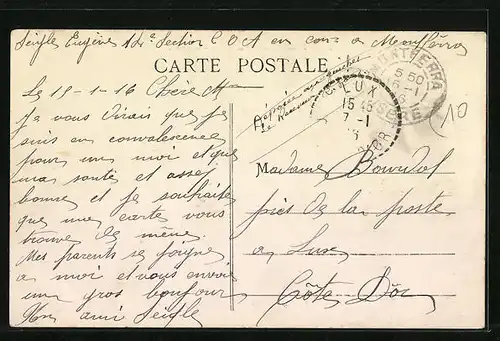 Seigle Eugène 14e Section C O A en conv a Montferra
CARTE POSTALE
Le 19-1-16 Chère Mme
Je vous dirais que je
suis en convalescence
pour un moi et que
ma santé et assez
bonne et je souhaite
que ma carte vous
trouve de même.
Mes parents se joigne
a moi et vous envoie
un gros bonjour
Mon ami Seigle
MONTFERRA
5 50
6 -1
ISERE
LUX
15 15
7 -1
16
10
Madame Bourdot
près de la poste
a Lux
Côte D'or